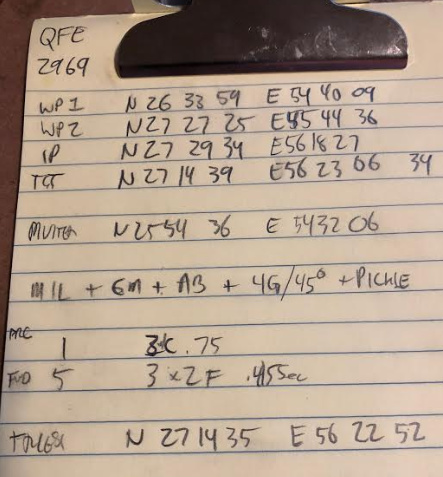 QFE
2969
WP1 N 26 33 59 E 54 40 09
WP2 N27 27 25 E55 44 36
IP N 27 29 34 E56 18 27
TGT N 27 14 39 E56 23 06 34
N 25 54 36 E 54 32 06
MIL + 6M + AB + 4G/45° + PICKLE
1 .75
5 3 x 2 F .45 Sec
N 27 14 35 E 56 22 52